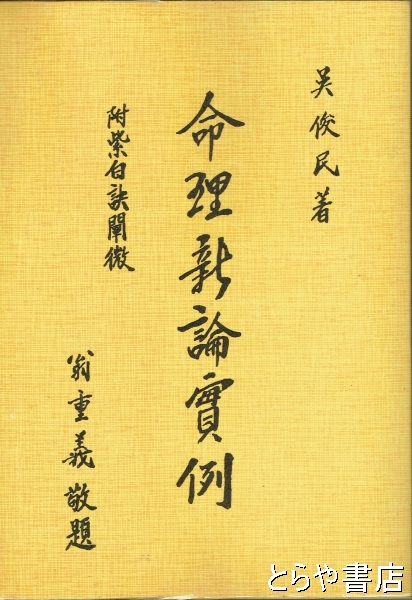 吳俊民著
命理新論實例
附紫白訣闡微
翁重義敬題
とらや書店